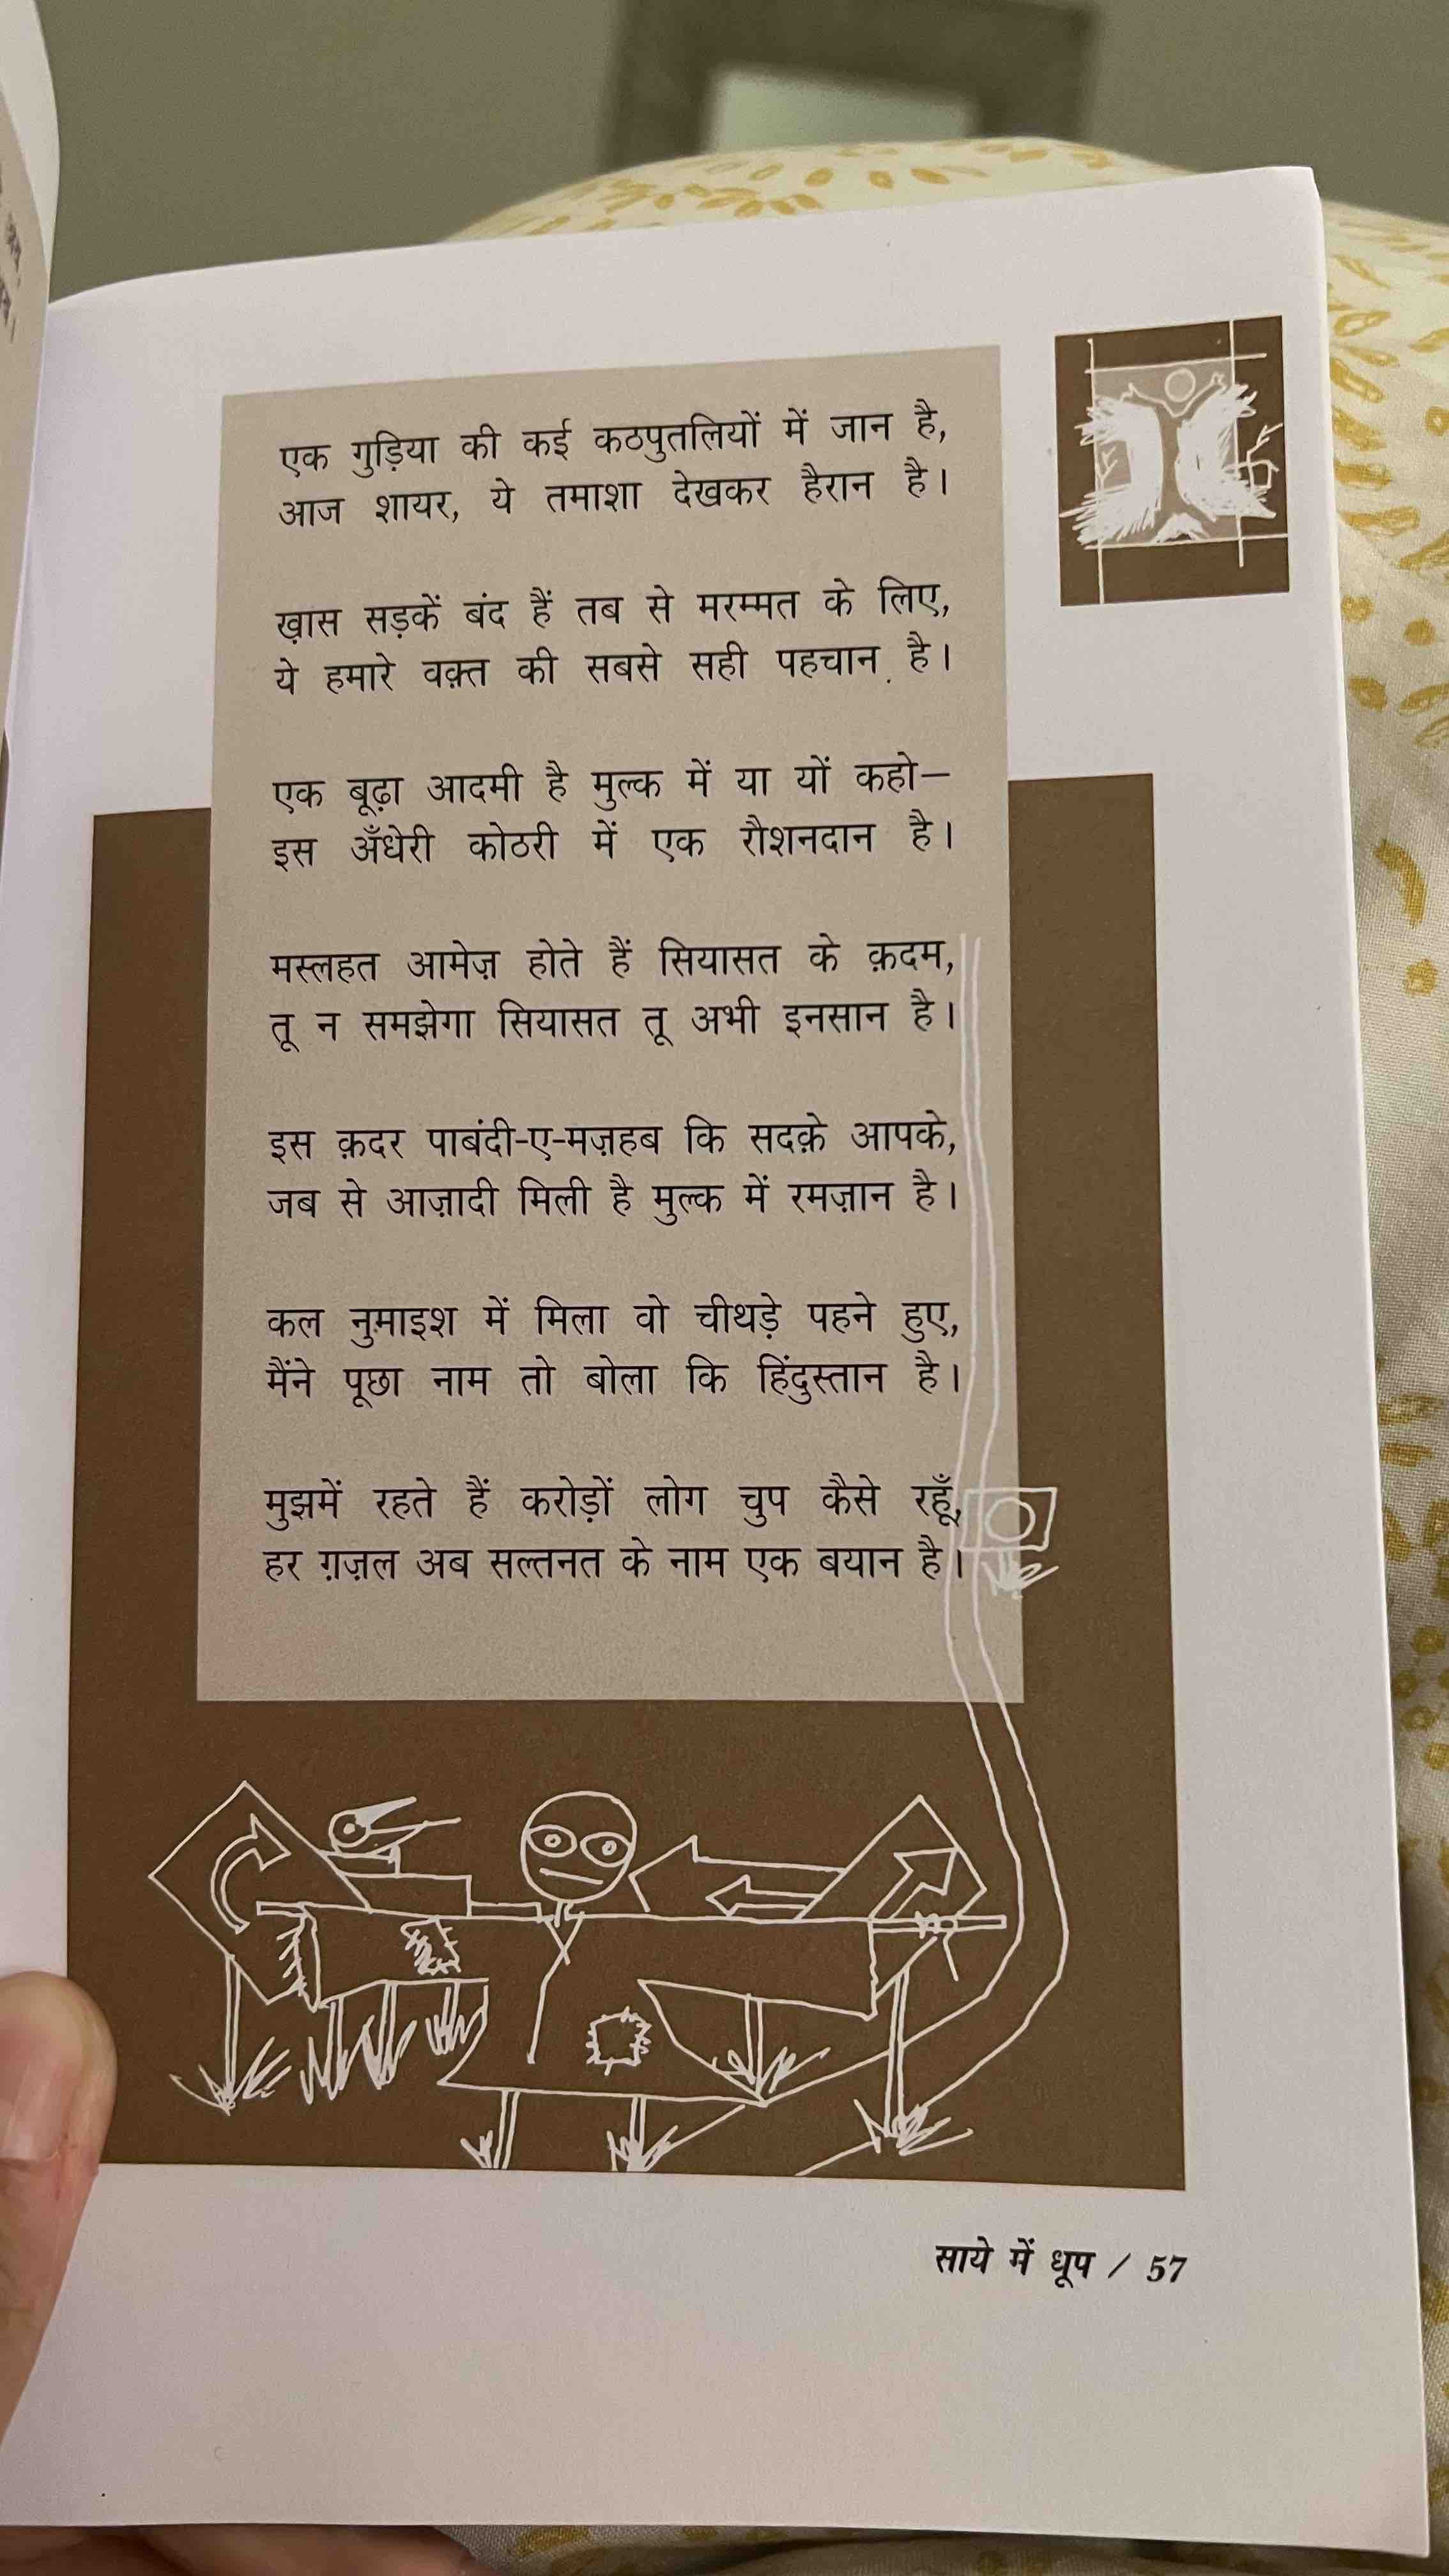 एक गुड़िया की कई कठपुतलियों में जान है,
आज शायर, ये तमाशा देखकर हैरान है।
ख़ास सड़कें बंद हैं तब से मरम्मत के लिए,
ये हमारे वक़्त की सबसे सही पहचान है।
एक बूढ़ा आदमी है मुल्क में या यों कहो—
इस अँधेरी कोठरी में एक रौशनदान है।
मस्लहत आमेज़ होते हैं सियासत के क़दम,
तू न समझेगा सियासत तू अभी इनसान है।
इस क़दर पाबंदी-ए-मज़हब कि सदक़े आपके,
जब से आज़ादी मिली है मुल्क में रमज़ान है।
कल नुमाइश में मिला वो चीथड़े पहने हुए,
मैंने पूछा नाम तो बोला कि हिंदुस्तान है।
मुझमें रहते हैं करोड़ों लोग चुप कैसे रहूँ,
हर ग़ज़ल अब सल्तनत के नाम एक बयान है।
साये में धूप / 57